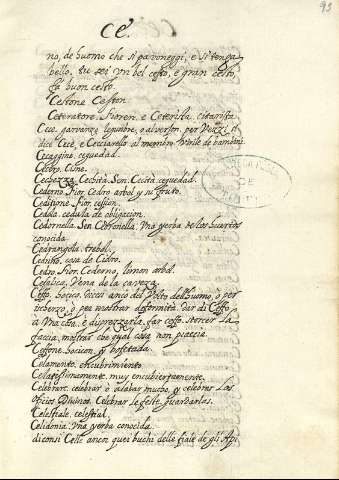 93
CE.
no, de huomo che si pavoneggi, e si tenga
bello, tu sei un bel cesto, e gran cesto,
fa buon cesto
Cestone Ceston
Ceteratore. Fioren. e Ceterista. citarista
Cece. garvanzo legumbre, o al verson, per Vezzi si
dice Cece, e Cecciarello al membro Virile de bambini
Cecaggine. ceguedad.
Cecero, Cisne.
Cechezza. Cechità. Sen. Cecità ceguedad.
Cederno. Fior. Cedro arbol y su fruto.
Ceditione. Fior. cession.
Cedola. cedula de obligacion.
Cedornella. Sen. Citronella. Una yerba de los huertos
conocida
Cedrangola. trebol.
Cedrino, cosa de Cidro.
Cedro. Fior. Cederno, limon arbol.
Cefalica, Vena de la caveza
Ceffo. hocico, dicesi anco del Volto dell'huomo, ò per
ischerzo, ò per mostrar deformità. dar di Ceffo
à Una cosa. è disprezzarla, far ceffo. storcer la
faccia, mostrar che qual cosa non piaccia.
Ceffone. hocicon, y bofetada.
Celamento. encubrimiento
Celatissimamente. muy encubiertamente.
Celebrare. celebrar ò alabar mucho, y celebrar los
oficios Divinos. Celebrar le feste. guardarlas.
Celestiale. celestial,
Celidonia. Una yerba conocida
diconsi Celle ancor quei buchi delle fiale de gli Api